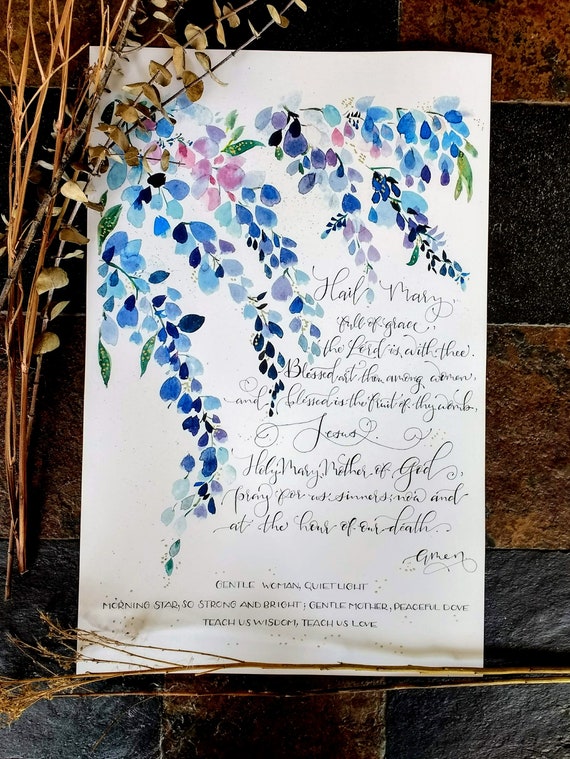 Hail Mary,
full of grace,
the Lord is with thee.
Blessed art thou among women,
and blessed is the fruit of thy womb,
Jesus.
Holy Mary, Mother of God,
pray for us sinners, now and
at the hour of our death.
Amen
GENTLE WOMAN, QUIET LIGHT
MORNING STAR, SO STRONG AND BRIGHT; GENTLE MOTHER, PEACEFUL DOVE
TEACH US WISDOM, TEACH US LOVE